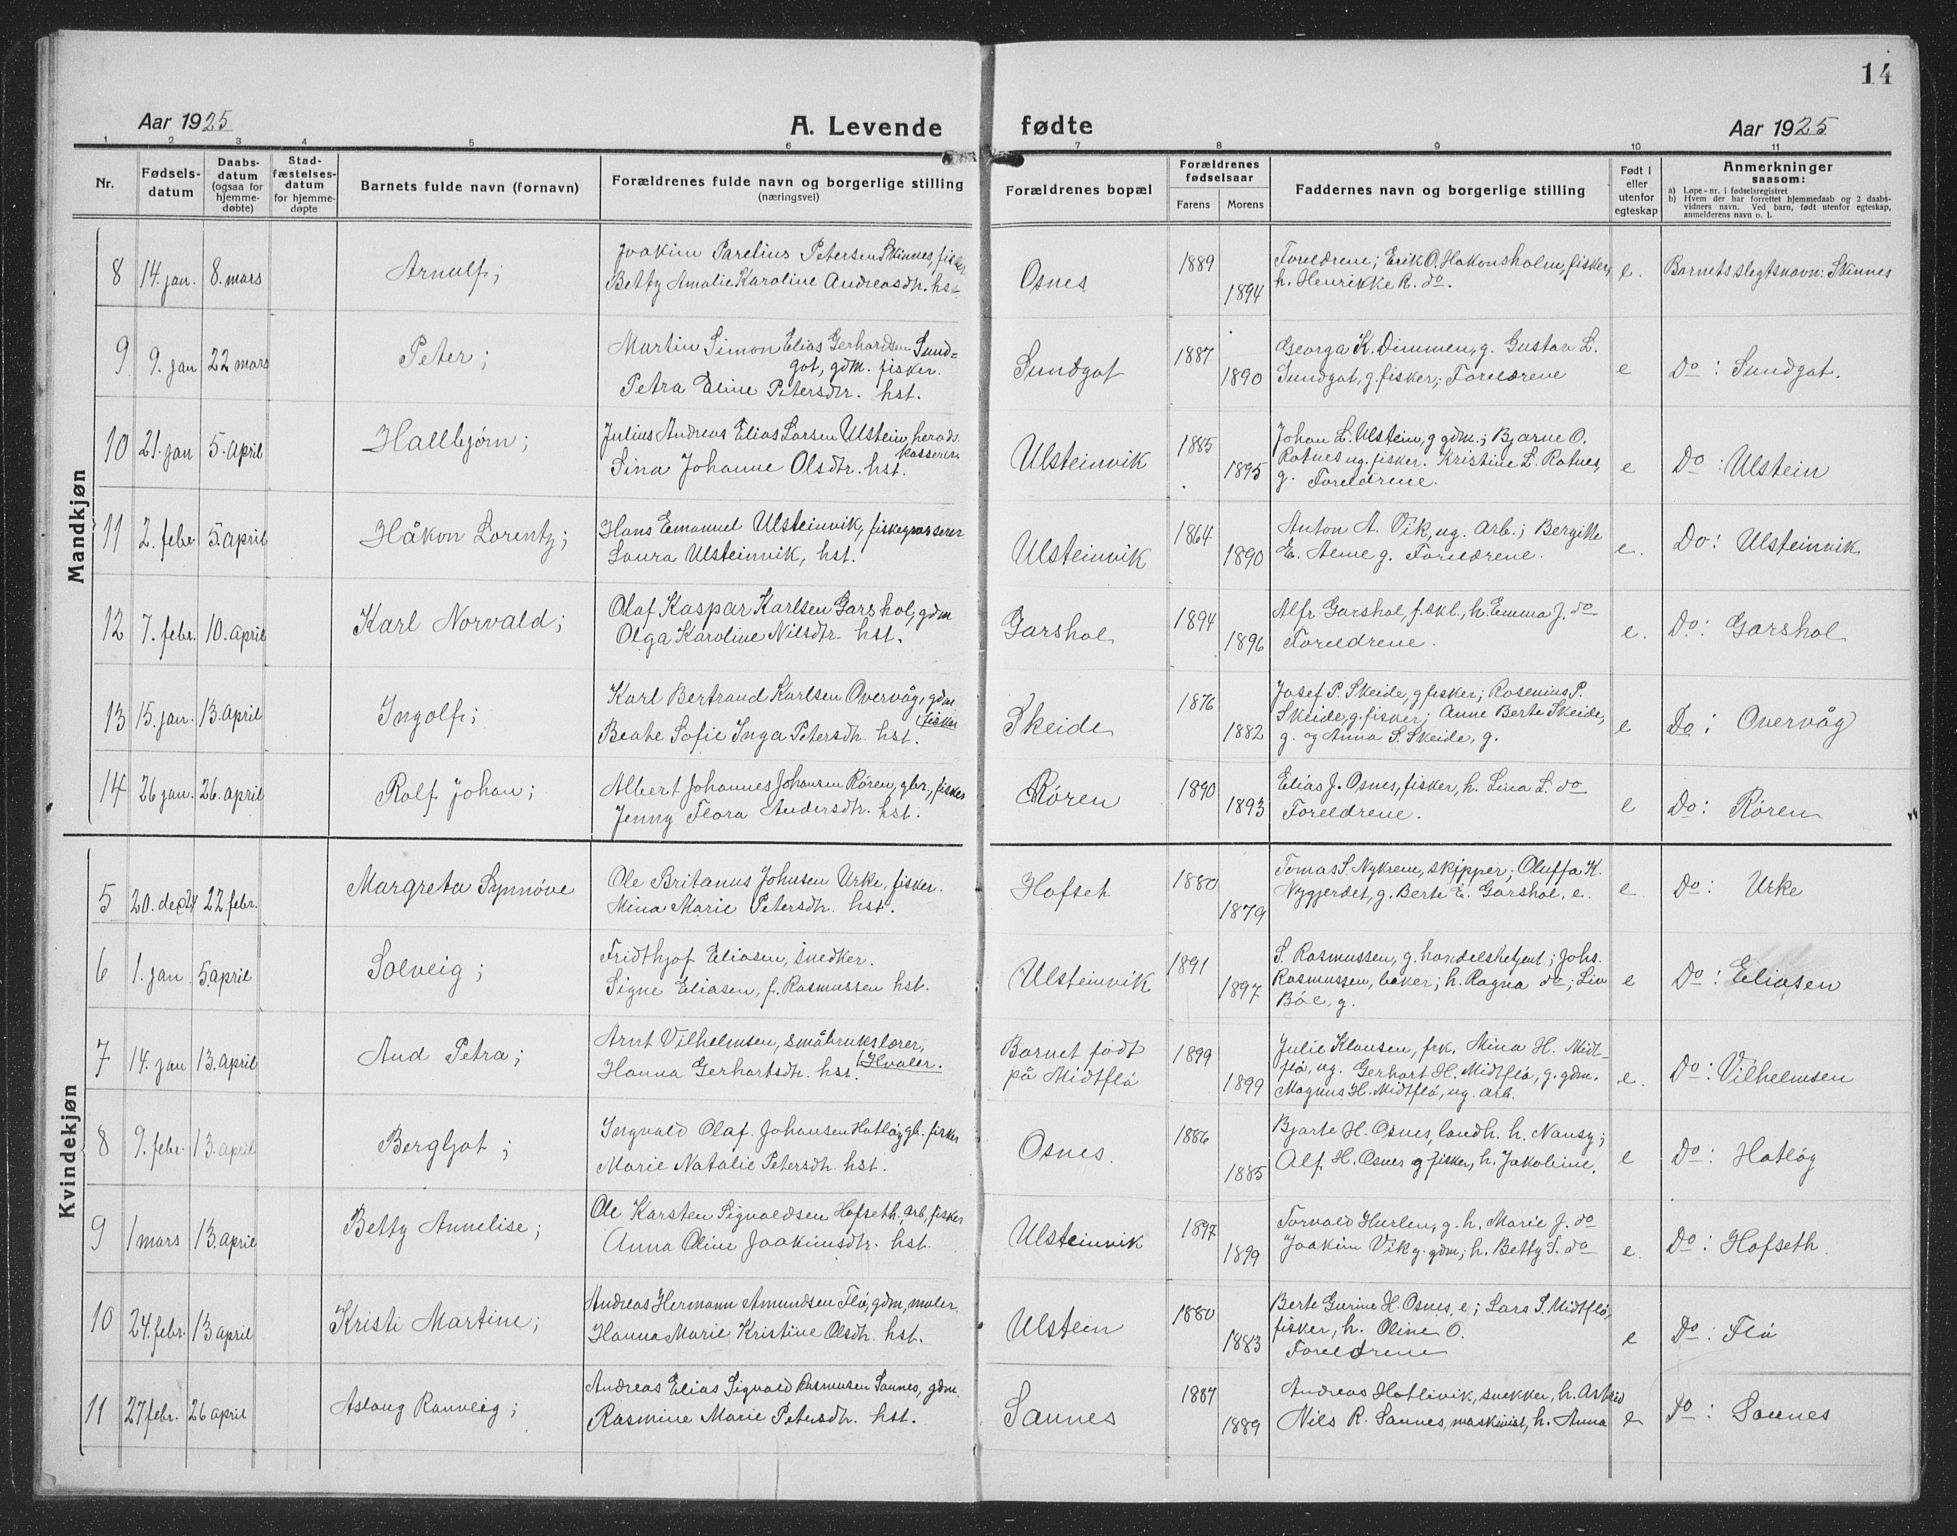 14
Aar 1925 A. Levende fødte Aar 1925
1 2 3 4 5 6 7 8 9 10 11
Nr.
Fødsels-
datum
Daabs-
datum
(ogsaa for
hjemme-
døbte)
Stad-
fæstelses-
datum
for hjemme-
døpte
Barnets fulde navn (fornavn)
Forældrenes fulde navn og borgerlige stilling
(næringsvei)
Forældrenes bopæl
Forældrenes
fødselsaar
Farens Morens
Faddernes navn og borgerlige stilling
Født i
eller
utenfor
egteskap
Anmerkninger
saasom:
a) Løpe-nr. i fødselsregistret
b) Hvem der har forrettet hjemmedaab og 2 daabs-
vidners navn. Ved barn, født utenfor egteskap,
anmelderens navn o. l.
Mandkjøn
8 14. jan. 8. mars Arnulf;
Joakim Parelius Petersen Skinnes, fisker
Betty Amalie Karoline Andreasdtr. hst.
Osnes 1889 1894
Foreldrene; Erik O. Hakonsholm, fisker,
h. Henrikke R. do.
e. Barnets slegtsnavn: Skinnes
9 9. jan 22 mars Peter;
Martin Simon Elias Gerhardsen Sund=
got, gdm. fisker.
Petra Eline Petersdtr. hst.
Sundgot 1887 1890
Georga K. Dimmen, g. Gustav L.
Sundgot, g. fisker; Foreldrene
e Do: Sundgot.
10 21. jan 5. april Hallbjørn;
Julius Andreas Elias Larsen Ulstein, herads
kasserer.
Sina Johanne Olsdtr. hst.
Ulsteinvik 1885 1895
Johan L. Ulstein, g gdm.; Bjarne O.
Ratnes ug. fisker. Kristine L. Ratnes,
g. Foreldrene.
e Do: Ulstein
11 2. febr 5. april Håkon Lorentz;
Hans Emanuel Ulsteinvik,
Laura Ulsteinvik, hst.
Ulsteinvik 1864 1890
Anton A. Vik, ug. arb.; Bergitte
E. Aeme g. Foreldrene.
e. Do: Ulsteinvik
12 7. febr. 10. april Karl Norvald;
Olaf Kaspar Karlsen Garshol, gdm
Olga Karoline Nilsdtr. hst.
Garshol 1894 1896
Alfr. Garshol, f.skl., h. Emma J. do
Foreldrene.
e. Do: Garshol
13 15. jan. 13. april Ingolf;
Karl Bertrand Karlsen Overvåg, gdm
fisker
Beate Sofie Inga Petersdtr. hst.
Skeide 1876 1882
Josef P. Skeide, g fisker; Rasenius P.
Skeide, g. fisker; Anne Berte Skeide,
g. og Anna S. Skeide, g.
e Do: Overvåg
14 26 jan. 26. april Rolf Johan;
Albert Johannes Johansen Røren, gbr., fisker
Jenny Flora Andersdtr. hst.
Røren 1890 1893
Elias J. Osnes, fisker, h. Lina L. do
Foreldrene.
e Do: Røren
Kvindekjøn
5 20. dec 24 22 febr. Margreta Synnøve
Ole Britanus Johnsen Urke, fisker.
Mina Marie Petersdtr. hst.
Hofset 1880 1879
Tomas S. Nykrem, skipper; Oluffa K.
Nygjerdet, g. Berte E. Garshol, e.
e. Do: Urke
6 1. jan 5 april Solveig;
Fridthjof Eliasen, snedker.
Signe Eliasen, f. Rasmussen hst.
Ulsteinvik 1891 1897
S. Rasmussen, g. handelsbetjent; Johs.
Rasmussen, baker; h. Ragna do; Liv
Böe, g.
e Do: Eliasen
7 14. jan 13. april Aud Petra;
Arnt Vilhelmsen, småbrukslærer,
Hvaler.
Hanna Gerhartsdtr. hst.
Barnet født
på Midtflö
1899 1899
Julie Klausen, frk. Mina H. Midt-
flö, ug. Gerhart H. Midtflö, g. gdm.
Magnus H. Midtflö, ug. arb.
e. Do: Vilhelmsen
8 9. febr. 13. april Bergljot;
Ingvald Olaf Johansen Hatløy gb. fisker
Marie Natalie Petersdtr. hst.
Osnes. 1886 1885
Bjarte H. Osnes, landh. h. Nansy;
Alf. H. Osnes g fisker, h. Jakobine.
e Do: Hatløy
9 1 mars 13. april Betty Annelise;
Ole Karsten Sigvaldsen Hofseth, arb, fisker
Anna Oline Joakimsdtr. hst.
Ulsteinvik 1897 1899
Torvald Hurlen, g. h. Marie J. do
Joakim Vik g. gdm; h. Betty S. do
e. Do: Hofseth.
10 24. febr. 13 april Kristi Martine;
Andreas Hermann Amundsen Flö, gdm, maler.
Hanna Marie Kristine Olsdtr. hst.
Ulstein 1880 1883
Berte Gurine H. Osnes, e; Lars S. Midtflö,
fisker, h. Oline O.
Foreldrene
e Do: Flö
11 27 febr. 26 april Aslaug Ranveig;
Andreas Elias Sigvald Rasmusen Saunes, gdm.
Rasmine Marie Petersdtr. hst.
Saunes 1887 1889
Andreas Hatlevik, snekker, h.
Nils R. Saunes, maskinist, h. Anna
e Do: Saunes